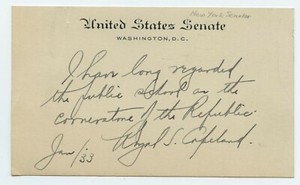 New York Senator
United States Senate
WASHINGTON, D.C.
I have long regarded
the public school as the
cornerstone of the Republic.
Jan 1/33 Royal S. Copeland.